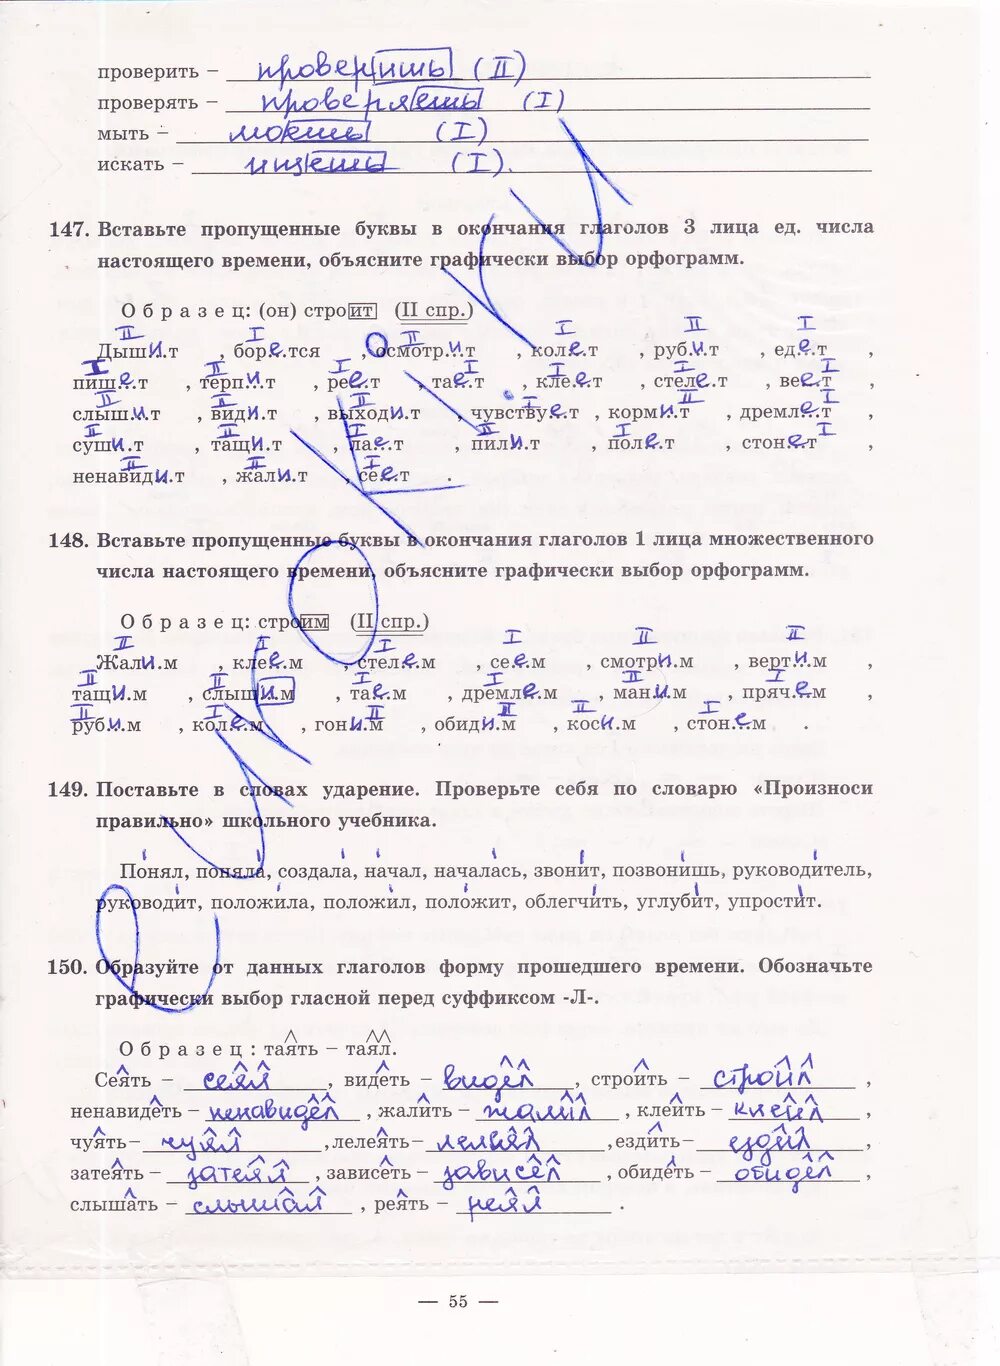 проверить – проверишь (II)
проверять – проверяешь (I)
мыть – моешь (I)
искать – ищешь (I).
147. Вставьте пропущенные буквы в окончания глаголов 3 лица ед. числа
настоящего времени, объясните графически выбор орфограмм.
Образец: (он) строит (II спр.)
II I II I II I
Дыши.т , бор.е.тся , осмотр.и.т , кол.е.т , руб.и.т , ед.е.т ,
I II I I I I I
пиш.е.т , терп.и.т , ре.е.т , та.е.т , кле.е.т , стел.е.т , ве.е.т ,
II II II I II I
слыш.и.т , види.т , выходи.т , чувству.е.т , корми.т , дремл.е.т ,
II II I II I I
суши.т , тащи.т , ла.е.т , пили.т , пол.е.т , стон.е.т ,
II II I
ненавиди.т , жали.т , се.е.т .
148. Вставьте пропущенные буквы в окончания глаголов 1 лица множественного
числа настоящего времени, объясните графически выбор орфограмм.
Образец: строим (II спр.)
II I I I II II
Жали.м , кле.е.м , стел.е.м , се.е.м , смотри.м , верт.и.м ,
II II I I II I
тащ.и.м , слыш.и.м , та.е.м , дремл.е.м , ман.и.м , пряч.е.м ,
II I II II II I
руб.и.м , кол.е.м , гони.м , обиди.м , коси.м , стон.е.м .
149. Поставьте в словах ударение. Проверьте себя по словарю «Произноси
правильно» школьного учебника.
Понял, поняла, создала, начал, началась, звонит, позвонишь, руководитель,
руководит, положила, положил, положит, облегчить, углубит, упростит.
150. Образуйте от данных глаголов форму прошедшего времени. Обозначьте
графически выбор гласной перед суффиксом -Л-.
Образец: таять – таял.
Сеять – сеял , видеть – видел , строить – строил ,
ненавидеть – ненавидел , жалить – жалил , клеить – клеил ,
чуять– чуял ,лелеять– лелеял ,ездить– ездил ,
затеять – затеял , зависеть – зависел , обидеть – обидел ,
слышать – слышал , реять – реял .
— 55 —